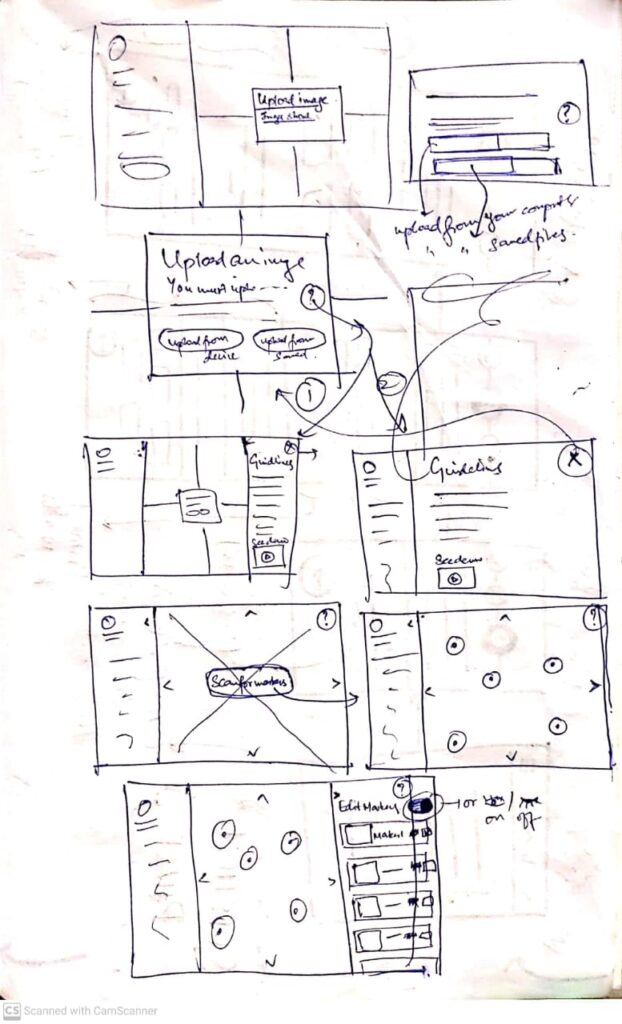 Upload image
?
upload from your computer
" " saved files.
Upload an image
You must uplo----
?
Upload from
device
Upload from
Saved
1
2
x
Guidlines
See demo
Guidelins
x
See demo
?
Scan for markers
?
?
Edit Markers
or
/
on off
CS Scanned with CamScanner